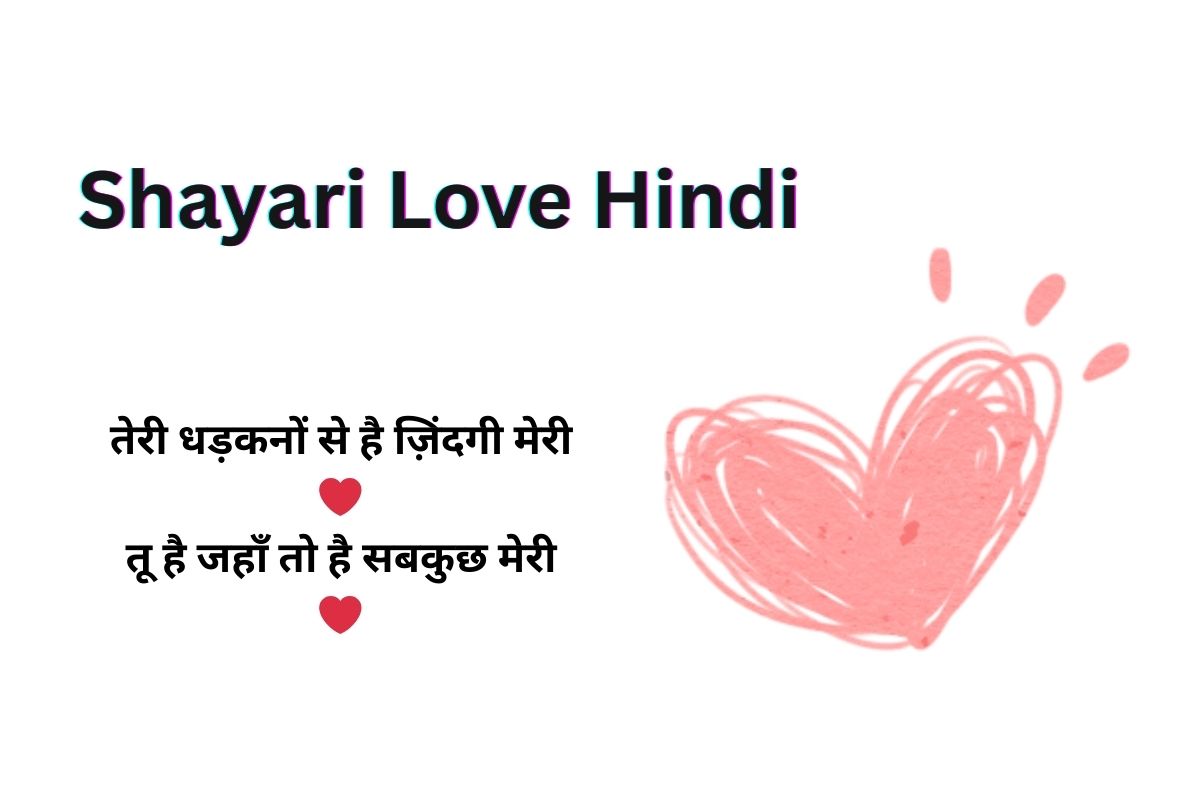 Shayari Love Hindi
तेरी धड़कनों से है ज़िंदगी मेरी
❤
तू है जहाँ तो है सबकुछ मेरी
❤